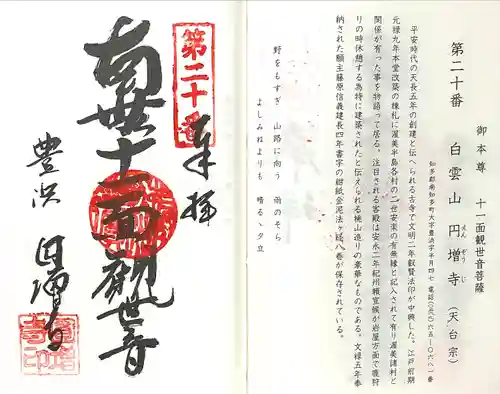 第二十番
御本尊 十一面観世音菩薩
白雲山円増寺(天台宗)
えんぞうじ
知多郡南知多町大字豊浜字半月四七 電話(六)六五一〇六八一番
平安時代の天長五年の創建と伝へられる古寺で文明二年叡賢法印が中興した。江戸前期
元禄九年本堂改築の棟札に渥美半島各村の二世安楽の有無縁と記入されて有り渥美諸村と
関係が有った事を物語って居る。注目される客殿は安永二年紀州頼宣候が岩屋方面で鹿狩
りの時休憩する為特に建築されたと伝えられる桃山造りの豪華なものである。文禄五年奉
納された願主藤原信義建長四年書字の紺紙金泥法ヶ経八巻が保存されている。
野をもすぎ 山路に向う 雨のそら
よしみねよりも 晴るゝ夕立
第二十番
奉拝
南無十一面観世音
豊浜
円増寺